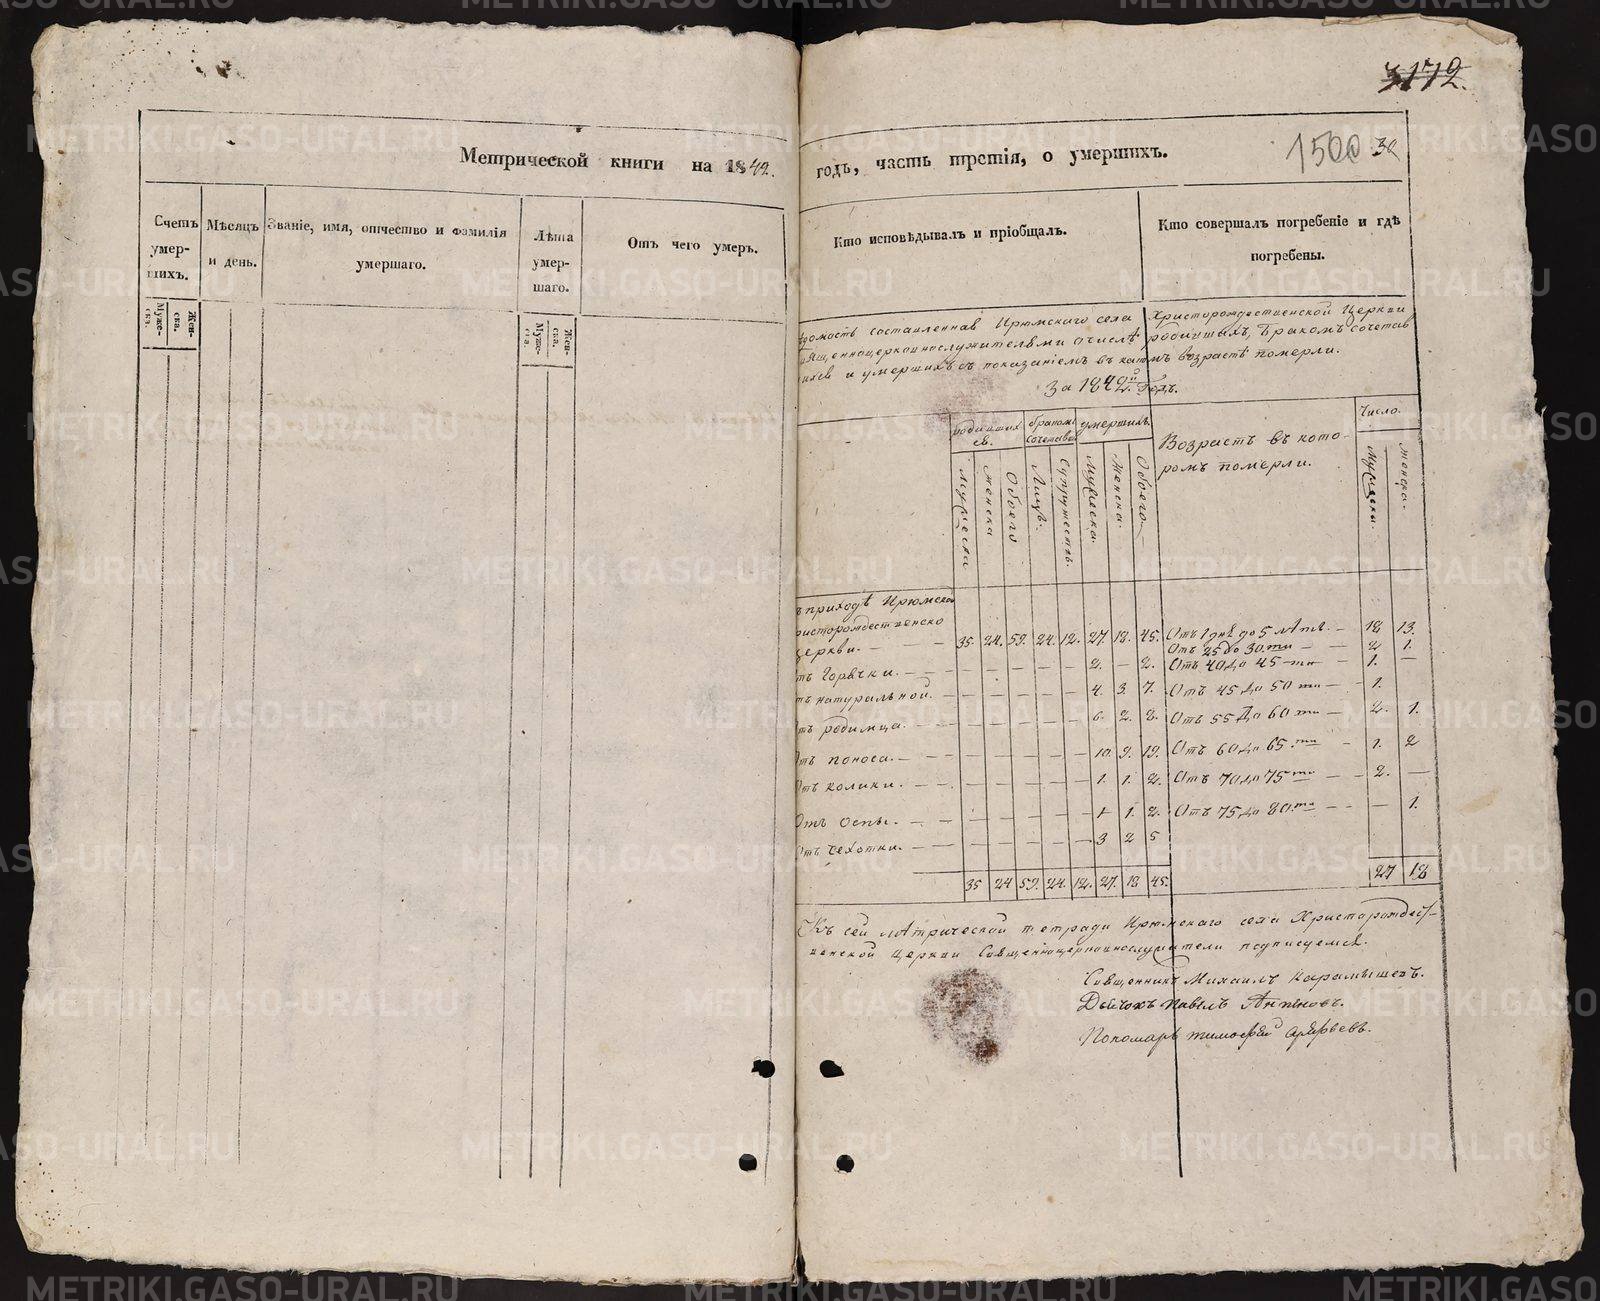 3172.
1500 30
Метрической книги на 1842.
годъ, часть третія, о умершихъ.
Счетъ умер-
шихъ.
Муже-
ска.
Жен-
ска.
Мѣсяцъ
и день.
Званіе, имя, отчество и фамилія
умершаго.
Лѣта
умер-
шаго.
Муже-
ска.
Жен-
ска.
Отъ чего умеръ.
Кто исповѣдывалъ и пріобщалъ.
Кто совершалъ погребеніе и гдѣ
погребены.
составленная Ирюмскаго села Христорождественской Церкви
о числѣ родившихъ, бракомъ сочетав
и умершихъ съ показаніемъ въ какомъ возрастѣ померли.
За 1842й Годъ.
родивших
ся.
бракомъ
сочетавш
умершихъ.
Возрастъ въ кото-
ромъ померли.
Число.
Мужеска
Женска
Обоего
Лицъ.
Супружествъ.
Мужеска.
Женска.
Обоего
Мужеска.
Женска.
приходѣ Ирюмской
церкви. 35. 24. 59. 24. 12. 27. 18. 45. Отъ 1 дня до 5 лѣтъ. 18 13.
Отъ 25 до 30.ти 2 1.
Горячки. 2. — 2. Отъ 40 до 45-ти 1. —
натуральной. 4. 3. 7. Отъ 45 до 50 ти 1.
родимца. 6. 2. 8. Отъ 55 до 60 ти 2. 1.
поноса. 10. 9. 19. Отъ 60 до 65.ти 1. 2
Отъ колики. 1. 1. 2. Отъ 70 до 75 ти 2. —
Отъ оспы. 1 1. 2. Отъ 75 до 80.ти — 1.
Отъ чехотки. 3 2 5
35 24 59. 24. 12. 27. 18 45. 27 18
Къ сей метрической тетради Ирюмскаго села Христорождест-
венской Церкви Священноцерковнослужители подписуемся.
Священникъ Михаилъ Карамышевъ.
Дьячокъ Павелъ
Пономарь Тимофей
METRIKI.GASO-URAL.RU